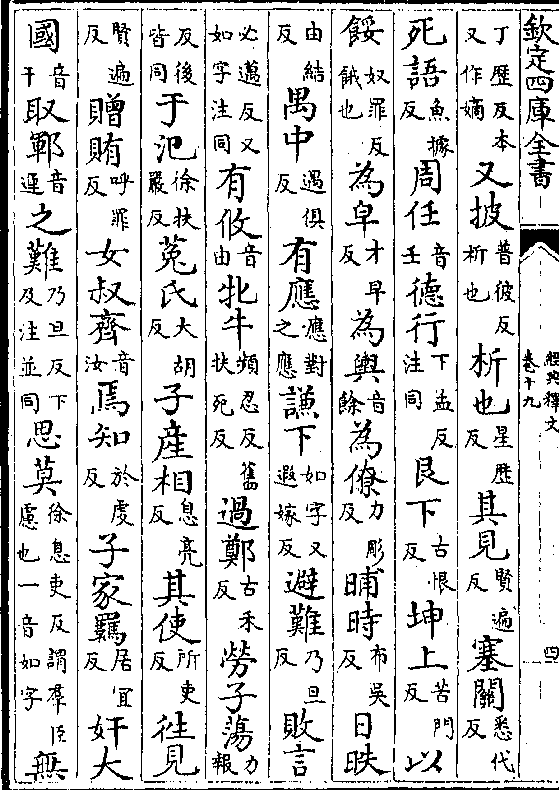 欽定四庫全書
經典釋文
卷十九
四
丁歷反本又作嫡又披普彼反析也析也星歷反其見賢遍反塞關悉代反
死語魚據反周任音壬德行下孟反注同艮下古恨反坤上苦門反以
餒奴罪反餓也為皁才早反為輿音餘為僚力彫反晡時布吴反日昳
由結反禺中遇俱反有應應對之應謙下如字又遐嫁反避難乃旦反敗言
必邁反又如字注同有攸音由牝牛頻忍反舊扶死反過鄭古禾反勞子蕩力報
反後皆同于氾徐扶嚴反菟氏大胡反子産相息亮反其使所吏反徃見
賢遍反贈賄呼罪反女叔齊音汝焉知於虔反子家羈居宜反奸大
國音干取鄆音運之難乃旦反下及注並同思莫徐息吏反謂羣臣慮也一音如字無